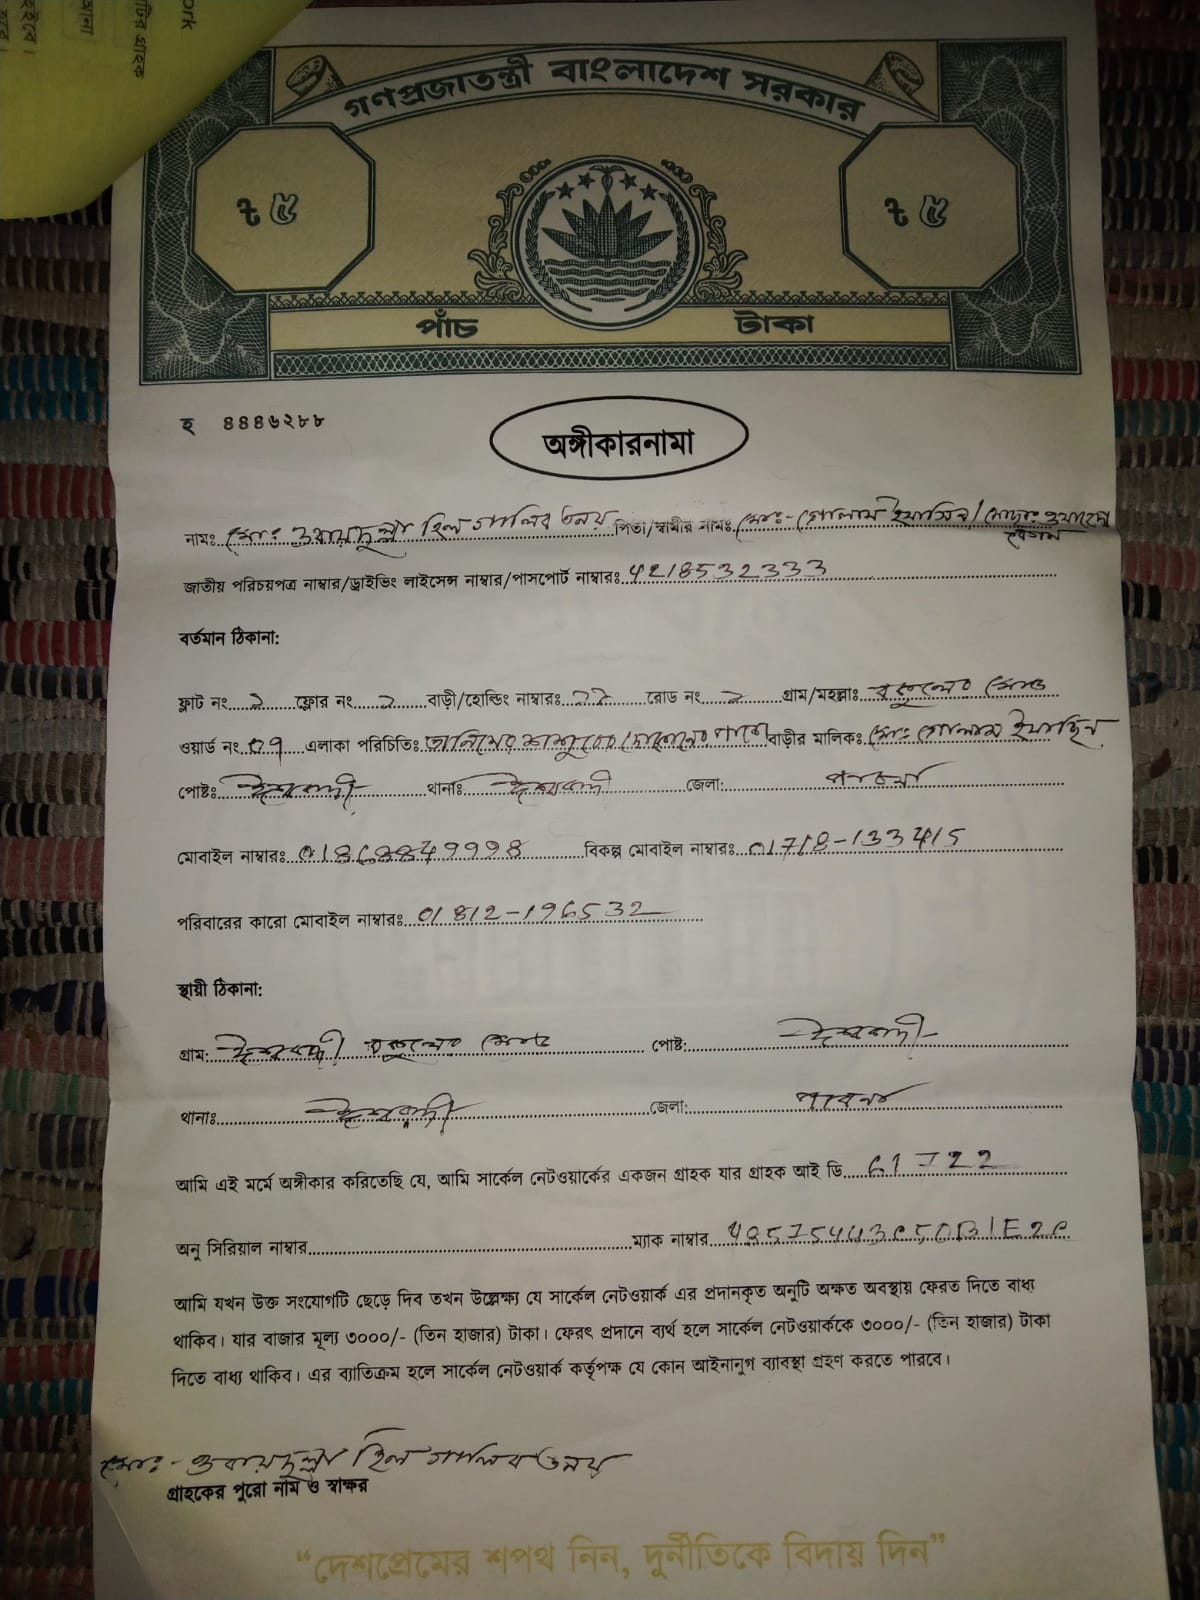 ork
টির গ্রাহক
জানা
হইবে।
গণপ্রজাতন্ত্রী বাংলাদেশ সরকার
৳ ৫ ৳ ৫
পাঁচ টাকা
হ ৪৪৪৬২৮৮
অঙ্গীকারনামা
নামঃ মোঃ ওবায়দুল্লা হিল গালিব তনয় পিতা/স্বামীর নামঃ মোঃ- গোলাম ইয়াসিন/মোছাঃ ওয়াহেদা
বেগম
জাতীয় পরিচয়পত্র নাম্বার/ড্রাইভিং লাইসেন্স নাম্বার/পাসপোর্ট নাম্বারঃ 4218532333
বর্তমান ঠিকানা:
ফ্লাট নং ফ্লোর নং বাড়ী/হোল্ডিং নাম্বারঃ রোড নং গ্রাম/মহল্লাঃ বকুলের মোড়
ওয়ার্ড নং 09 এলাকা পরিচিতিঃ বাড়ীর মালিকঃ মোঃ গোলাম ইয়াছিন
পোষ্টঃ ঈশ্বরদী থানাঃ ঈশ্বরদী জেলা: পাবনা
মোবাইল নাম্বারঃ বিকল্প মোবাইল নাম্বারঃ 01718-133415
পরিবারের কারো মোবাইল নাম্বারঃ 01812-196532
স্থায়ী ঠিকানা:
গ্রাম: ঈশ্বরদী বকুলের মোড় পোষ্ট: ঈশ্বরদী
থানাঃ ঈশ্বরদী জেলা: পাবনা
আমি এই মর্মে অঙ্গীকার করিতেছি যে, আমি সার্কেল নেটওয়ার্কের একজন গ্রাহক যার গ্রাহক আই ডি
অনু সিরিয়াল নাম্বার ম্যাক নাম্বার
আমি যখন উক্ত সংযোগটি ছেড়ে দিব তখন উল্লেক্ষ্য যে সার্কেল নেটওয়ার্ক এর প্রদানকৃত অনুটি অক্ষত অবস্থায় ফেরত দিতে বাধ্য
থাকিব। যার বাজার মূল্য ৩০০০/- (তিন হাজার) টাকা। ফেরৎ প্রদানে ব্যর্থ হলে সার্কেল নেটওয়ার্ককে ৩০০০/- (তিন হাজার) টাকা
দিতে বাধ্য থাকিব। এর ব্যাতিক্রম হলে সার্কেল নেটওয়ার্ক কর্তৃপক্ষ যে কোন আইনানুগ ব্যাবস্থা গ্রহণ করতে পারবে।
মোঃ- ওবায়দুল্লা হিল গালিব তনয়
গ্রাহকের পুরো নাম ও স্বাক্ষর
“দেশপ্রেমের শপথ নিন, দুর্নীতিকে বিদায় দিন”